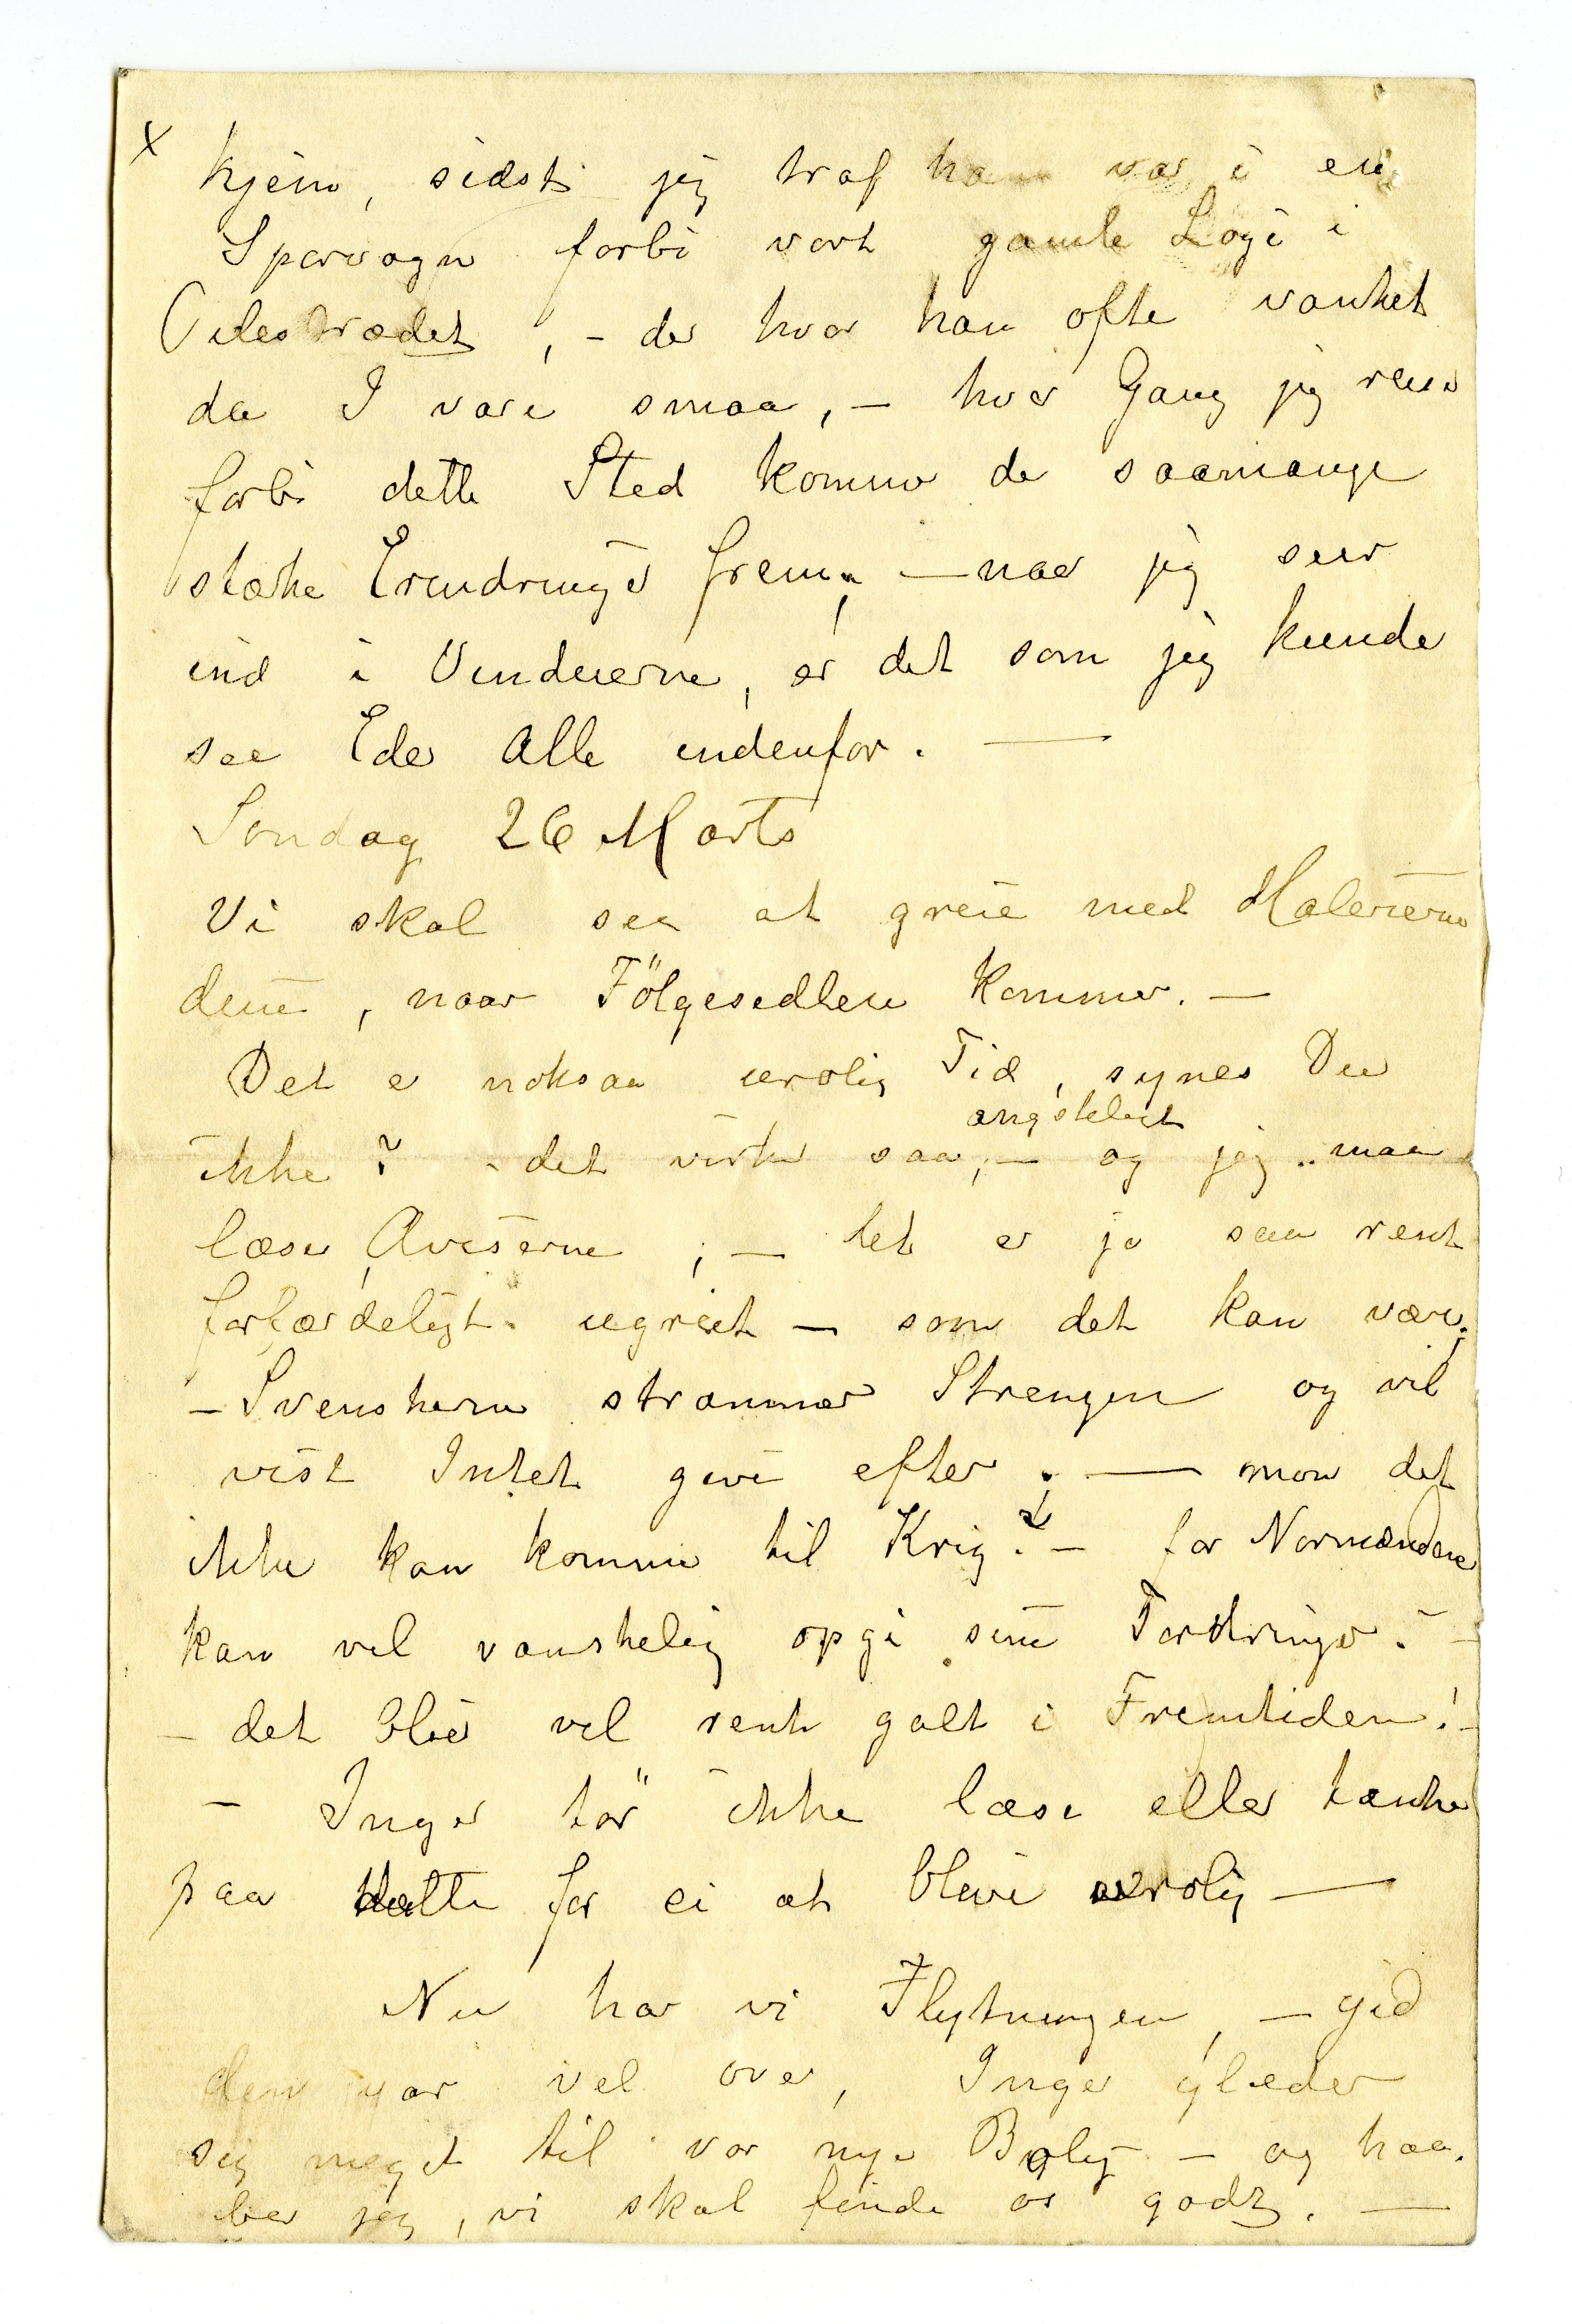 x hjem, sidst jeg traf ham var i en
Sporvogn forbi vort gamle Logi i
Pilestrædet, – der hvor han ofte vanket
da I vare smaa, – hver Gang jeg reiser
forbi dette Sted kommer de saamange
stærke Erindringer frem, – naar jeg seer
ind i Vinduerne, er det som jeg kunde
see Eder Alle indenfor. —
Söndag 26 Marts
Vi skal see at greie med Malerierne
dine, naar Fölgesedlen kommer. –
Det er noksaa urolig Tid, synes Du
ængsteligt
ikke? – det virker saa, – og jeg maa
læse Aviserne, – det er jo saa rent
forfærdeligt ugreit – som det kan være;
– Svenskerne strammer Strengen og vil
vist Intet give efter; — mon det
ikke kan komme til Krig? – for Normændene
kan vel vanskelig opgi sine Fordringer. –
– det blir vel rent galt i Fremtiden! –
– Inger tör ikke læse eller tænke
paa dette for ei at blive urolig —
Nu har vi Flytningen, – gid
den var vel over, Inger glæder
sig meget til vor nye Bolig – og haa-
ber jeg, vi skal finde os godt. —